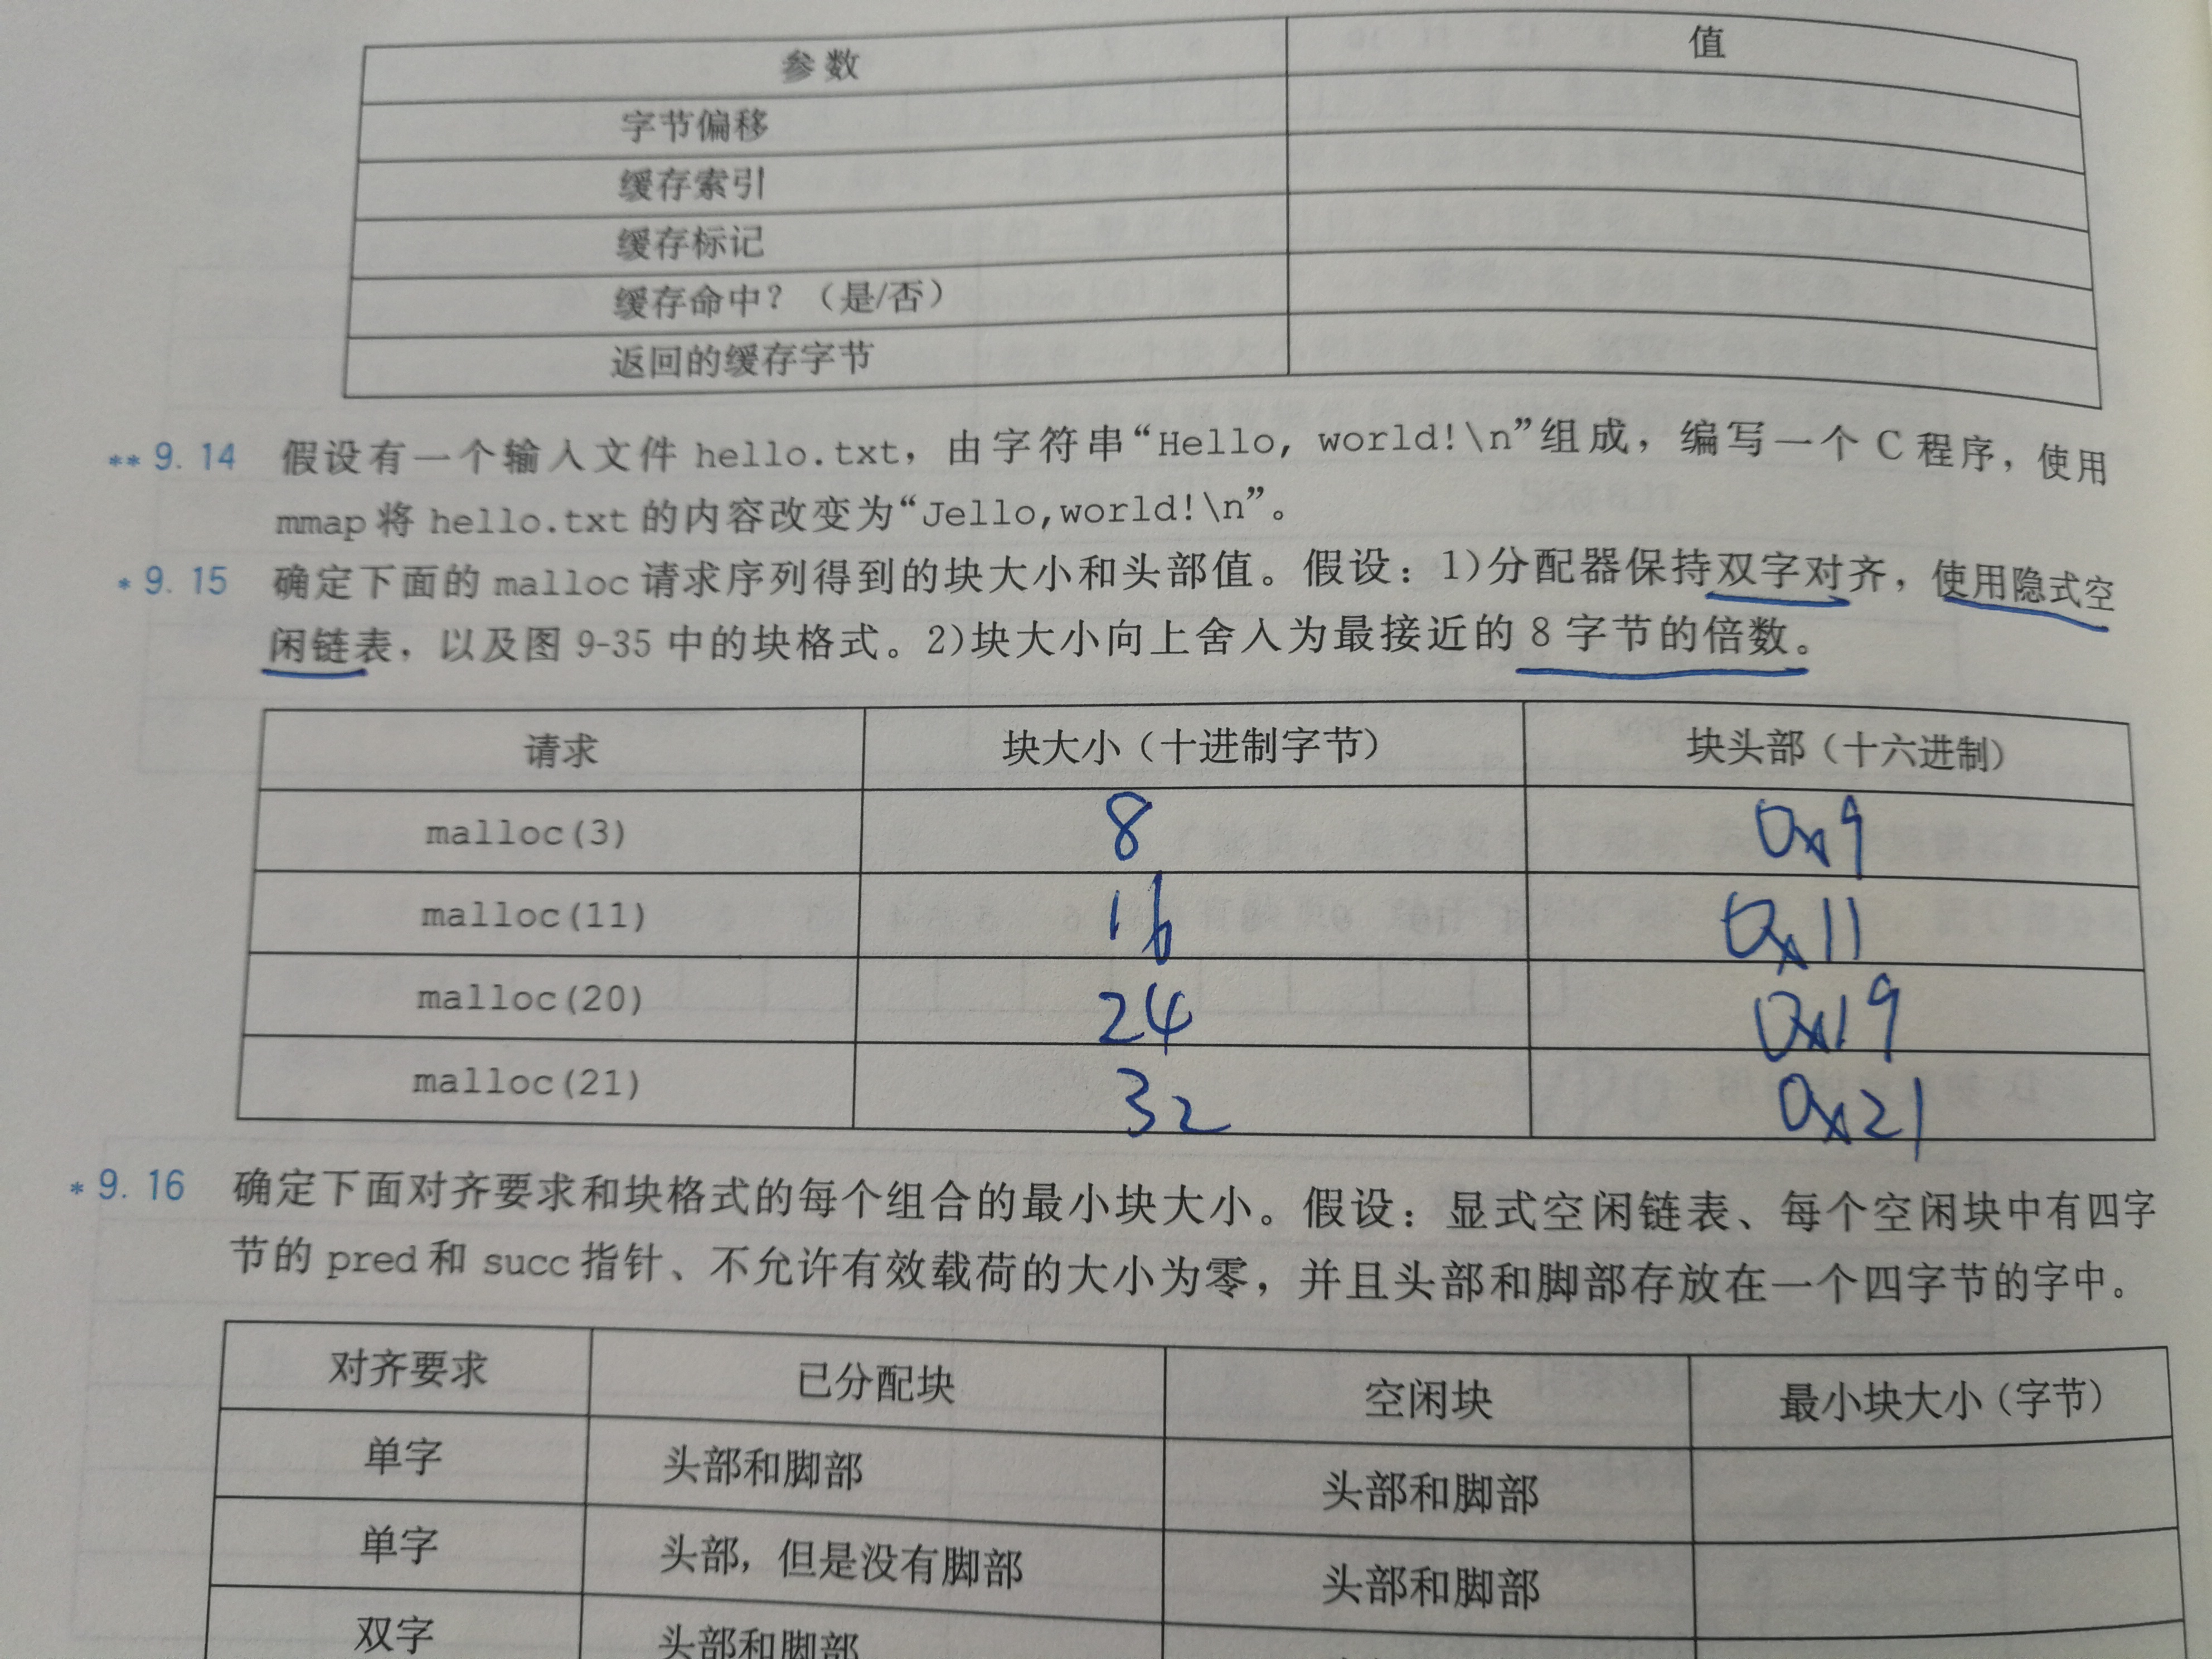 参数 值
字节偏移
缓存索引
缓存标记
缓存命中？（是/否）
返回的缓存字节
** 9.14 假设有一个输入文件 hello.txt，由字符串“Hello, world!\n”组成，编写一个 C 程序，使用
mmap 将 hello.txt 的内容改变为“Jello,world!\n”。
* 9.15 确定下面的 malloc 请求序列得到的块大小和头部值。假设：1)分配器保持双字对齐，使用隐式空
闲链表，以及图 9-35 中的块格式。2)块大小向上舍入为最接近的 8 字节的倍数。
请求 块大小（十进制字节） 块头部（十六进制）
malloc(3) 8 0x9
malloc(11) 16 0x11
malloc(20) 24 0x19
malloc(21) 32 0x21
* 9.16 确定下面对齐要求和块格式的每个组合的最小块大小。假设：显式空闲链表、每个空闲块中有四字
节的 pred 和 succ 指针、不允许有效载荷的大小为零，并且头部和脚部存放在一个四字节的字中。
对齐要求 已分配块 空闲块 最小块大小（字节）
单字 头部和脚部 头部和脚部
单字 头部，但是没有脚部 头部和脚部
双字 头部和脚部